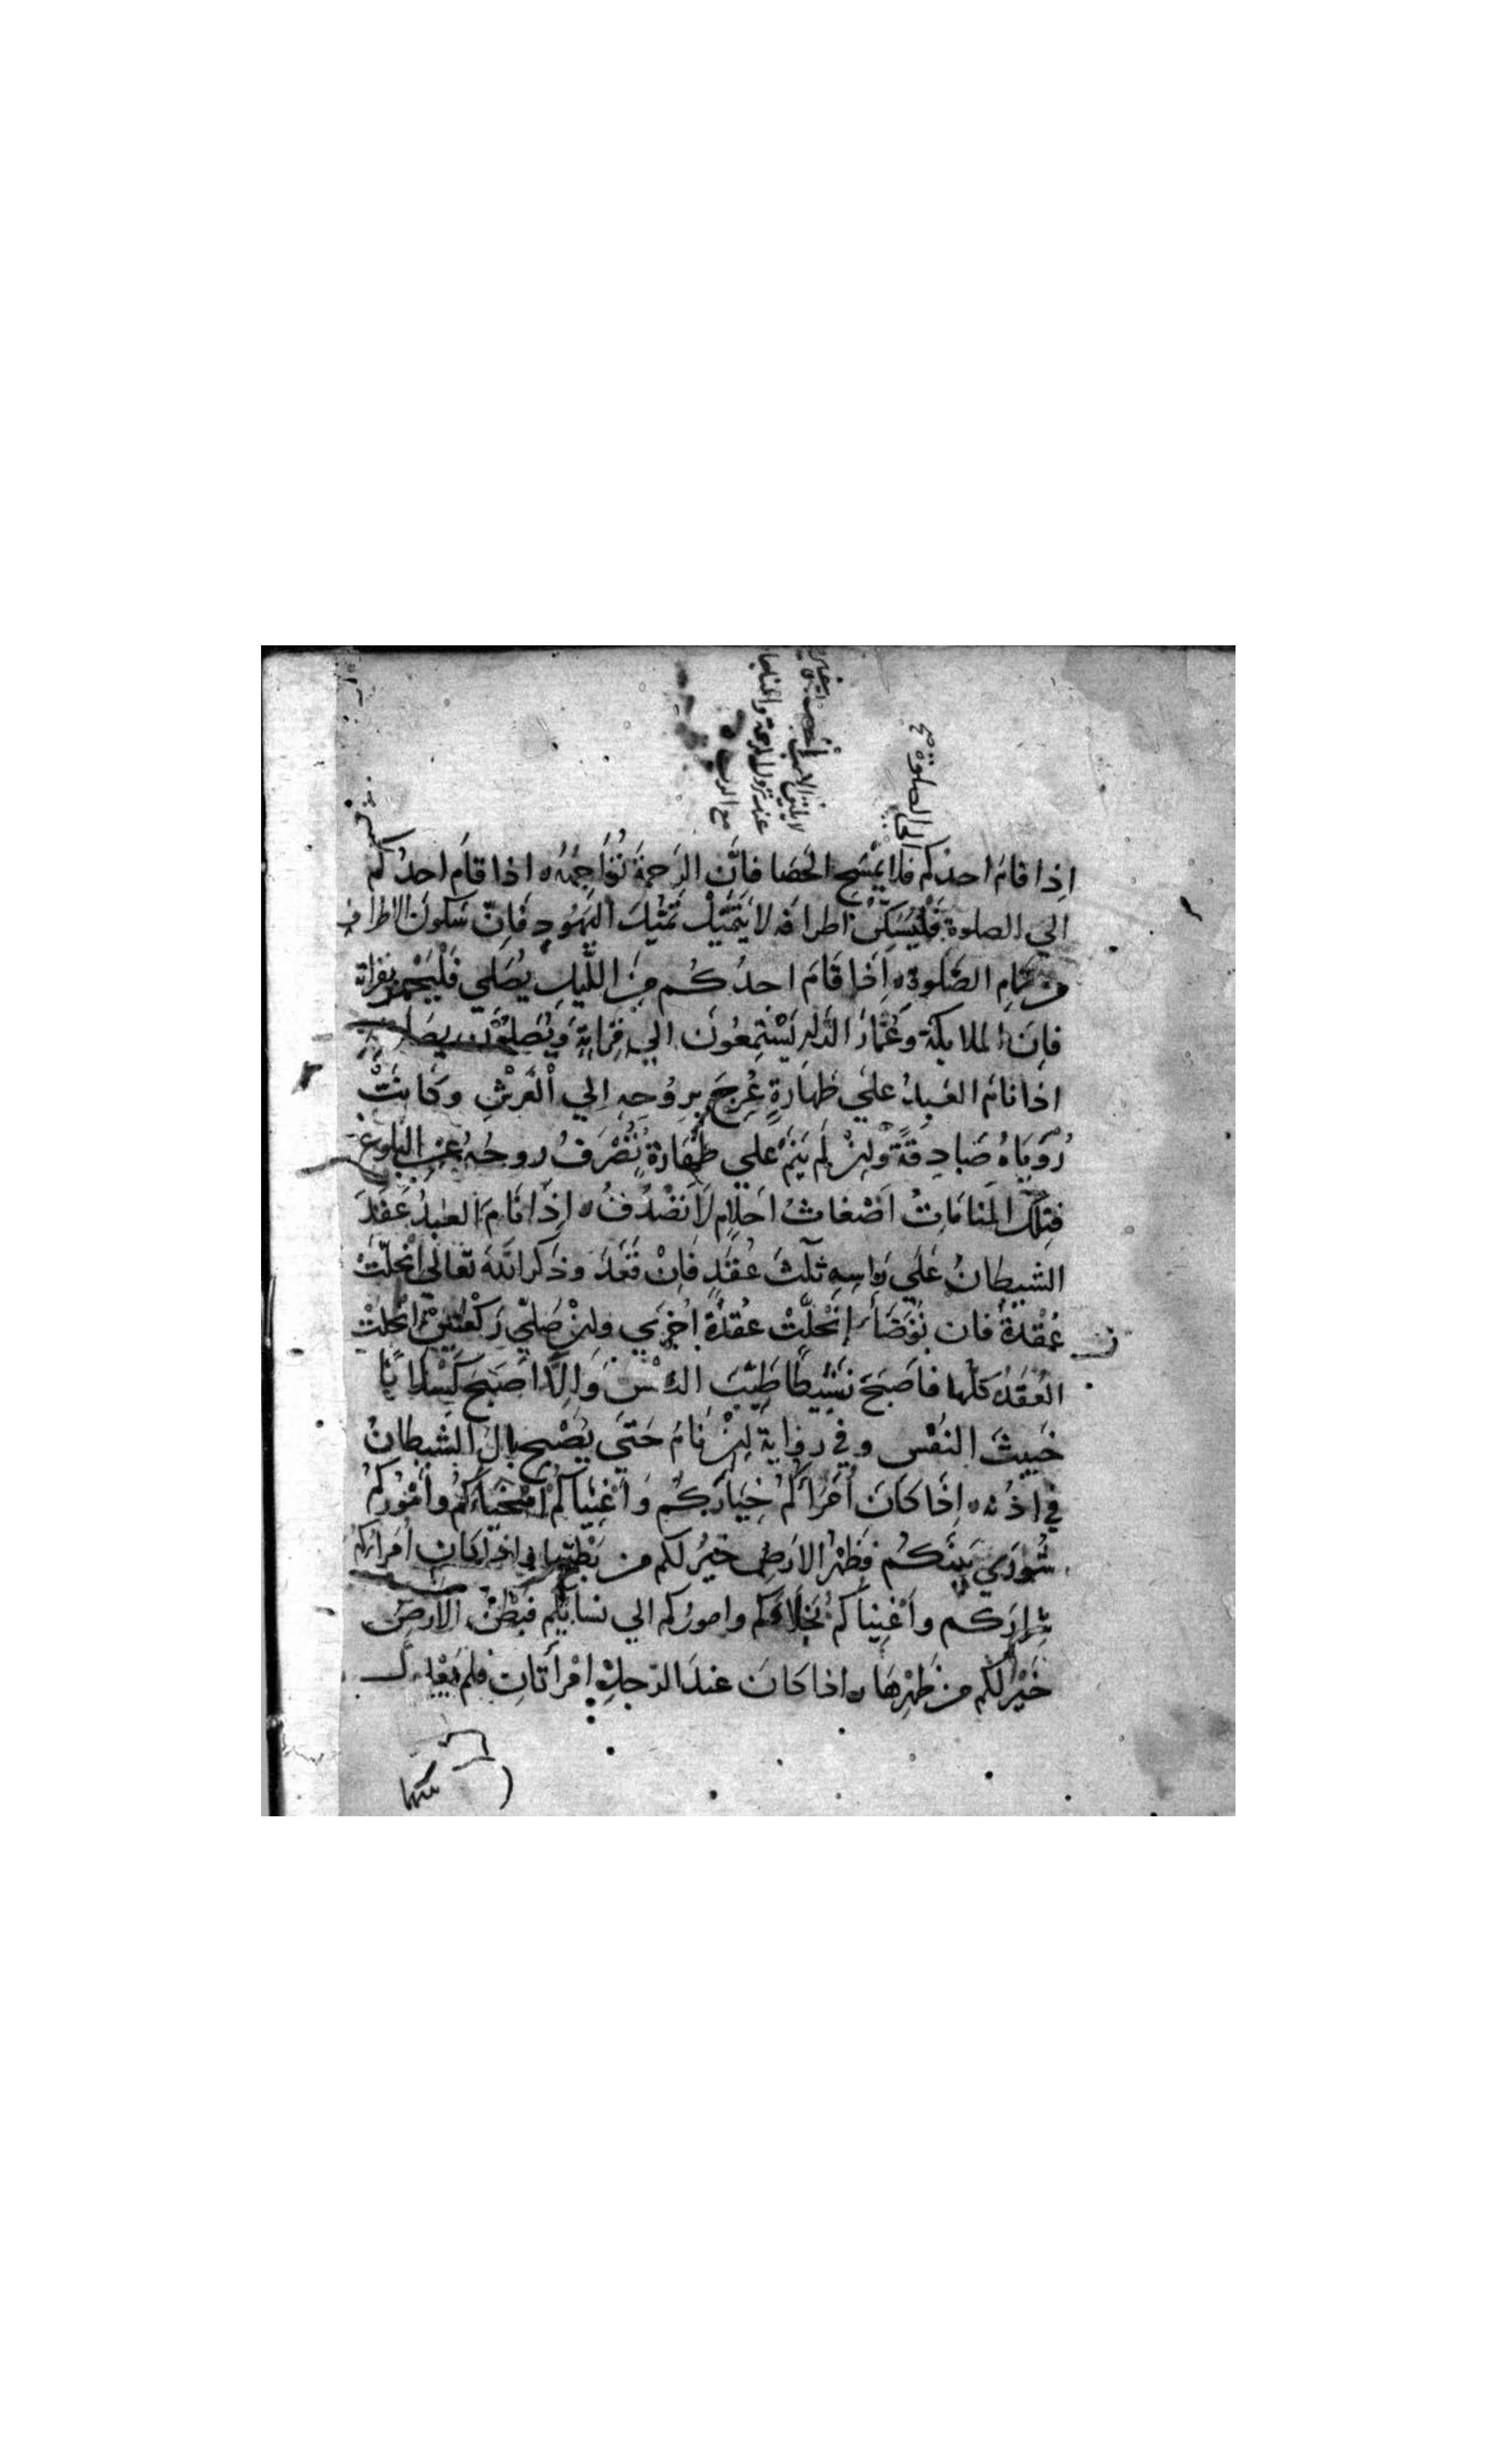 الى الصلوة صح
اِذا قامَ احدكم فلا يَمْسَحِ الحَصا فاِنَّ الرَحمةَ تُوَاجِهُهُ ه اذا قامَ احدُكم
الي الصلوةِ فَلْيُسَكِّنْ اطرافَه لا يَتَمَيَّلْ تَمَيُّلَ اليَهُودِ فَاِنّ سَكونَ الاطراف
من تَمامِ الصَّلوةِ ه اِذَا قَامَ احدُكُم مِنَ اللَّيلِ يُصَلي فَلْيَجْهَر بقراته
فاِنَ الملايكة وَعُمَّارَ الدّارِ يَسْتَمِعُونَ الي قِرَاتِهِ وَيُصَلُّونَ
اذا نامَ العَبدُ علَي طَهَارَةٍ عُرِجَ بِرُوُحِهِ اِلي العَرْشِ وكَانَتْ
رُوياهُ صَادِقةً وَاِنْ لَم يَنَمْ علي طَهَارَةٍ تُصْرَفُ روحُهُ عن البلوغ
فتِلكَ المنَامَاتُ اَضْغاثُ احلامٍ لا تَصْدُقُ ه اِذَا نَامَ العَبدُ عَقَدَ
الشيطانُ عَلَي راسِهِ ثلثَ عُقَدٍ فَاِنْ قَعَدَ وذَكَرَ اللهَ تَعَالَي انْحَلَّتْ
عُقْدةٌ فان تَوَضَّأَ اِنْحَلَّتْ عُقْدَةٌ اُخْرَي واِنْ صَلّي رَكْعَتَيْنِ انْحَلتْ
العُقَدُ كلّها فاَصبَحَ نَشِيطًا طَيِّبَ النفْسِ وَاِلَّا اَصبَحَ كَسْلانًا
خَبِيثَ النَفْسِ وفي رواية اِنْ نامَ حَتّي يُصْبِحِ بالَ الشَيطانُ
في اذُنه ه اِذَا كَانَ اُمَرَاكُم خِيَارَكُم وَاَغْنِيَاكُمْ اَسْخِيَاءَكُم وَاُمُورُكُم
شُورَي بَينَكُم فَظَهْرُ الارَضِ خَيرٌ لكم من بَطْنِها ه اِذَا كَانَ اُمَرَاؤكم
شِرارَكُم وَاَغْنِياَكُم بُخَلاءَكُم وامورُكم الي نسايِكُم فبَطْنُ الاَرضِ
خَيْرٌ لكم من ظَهْرِهَا ه اذا كَانَ عندَ الرّجلِ اِمْرَأَتانِ فلم يَعْدِلْ